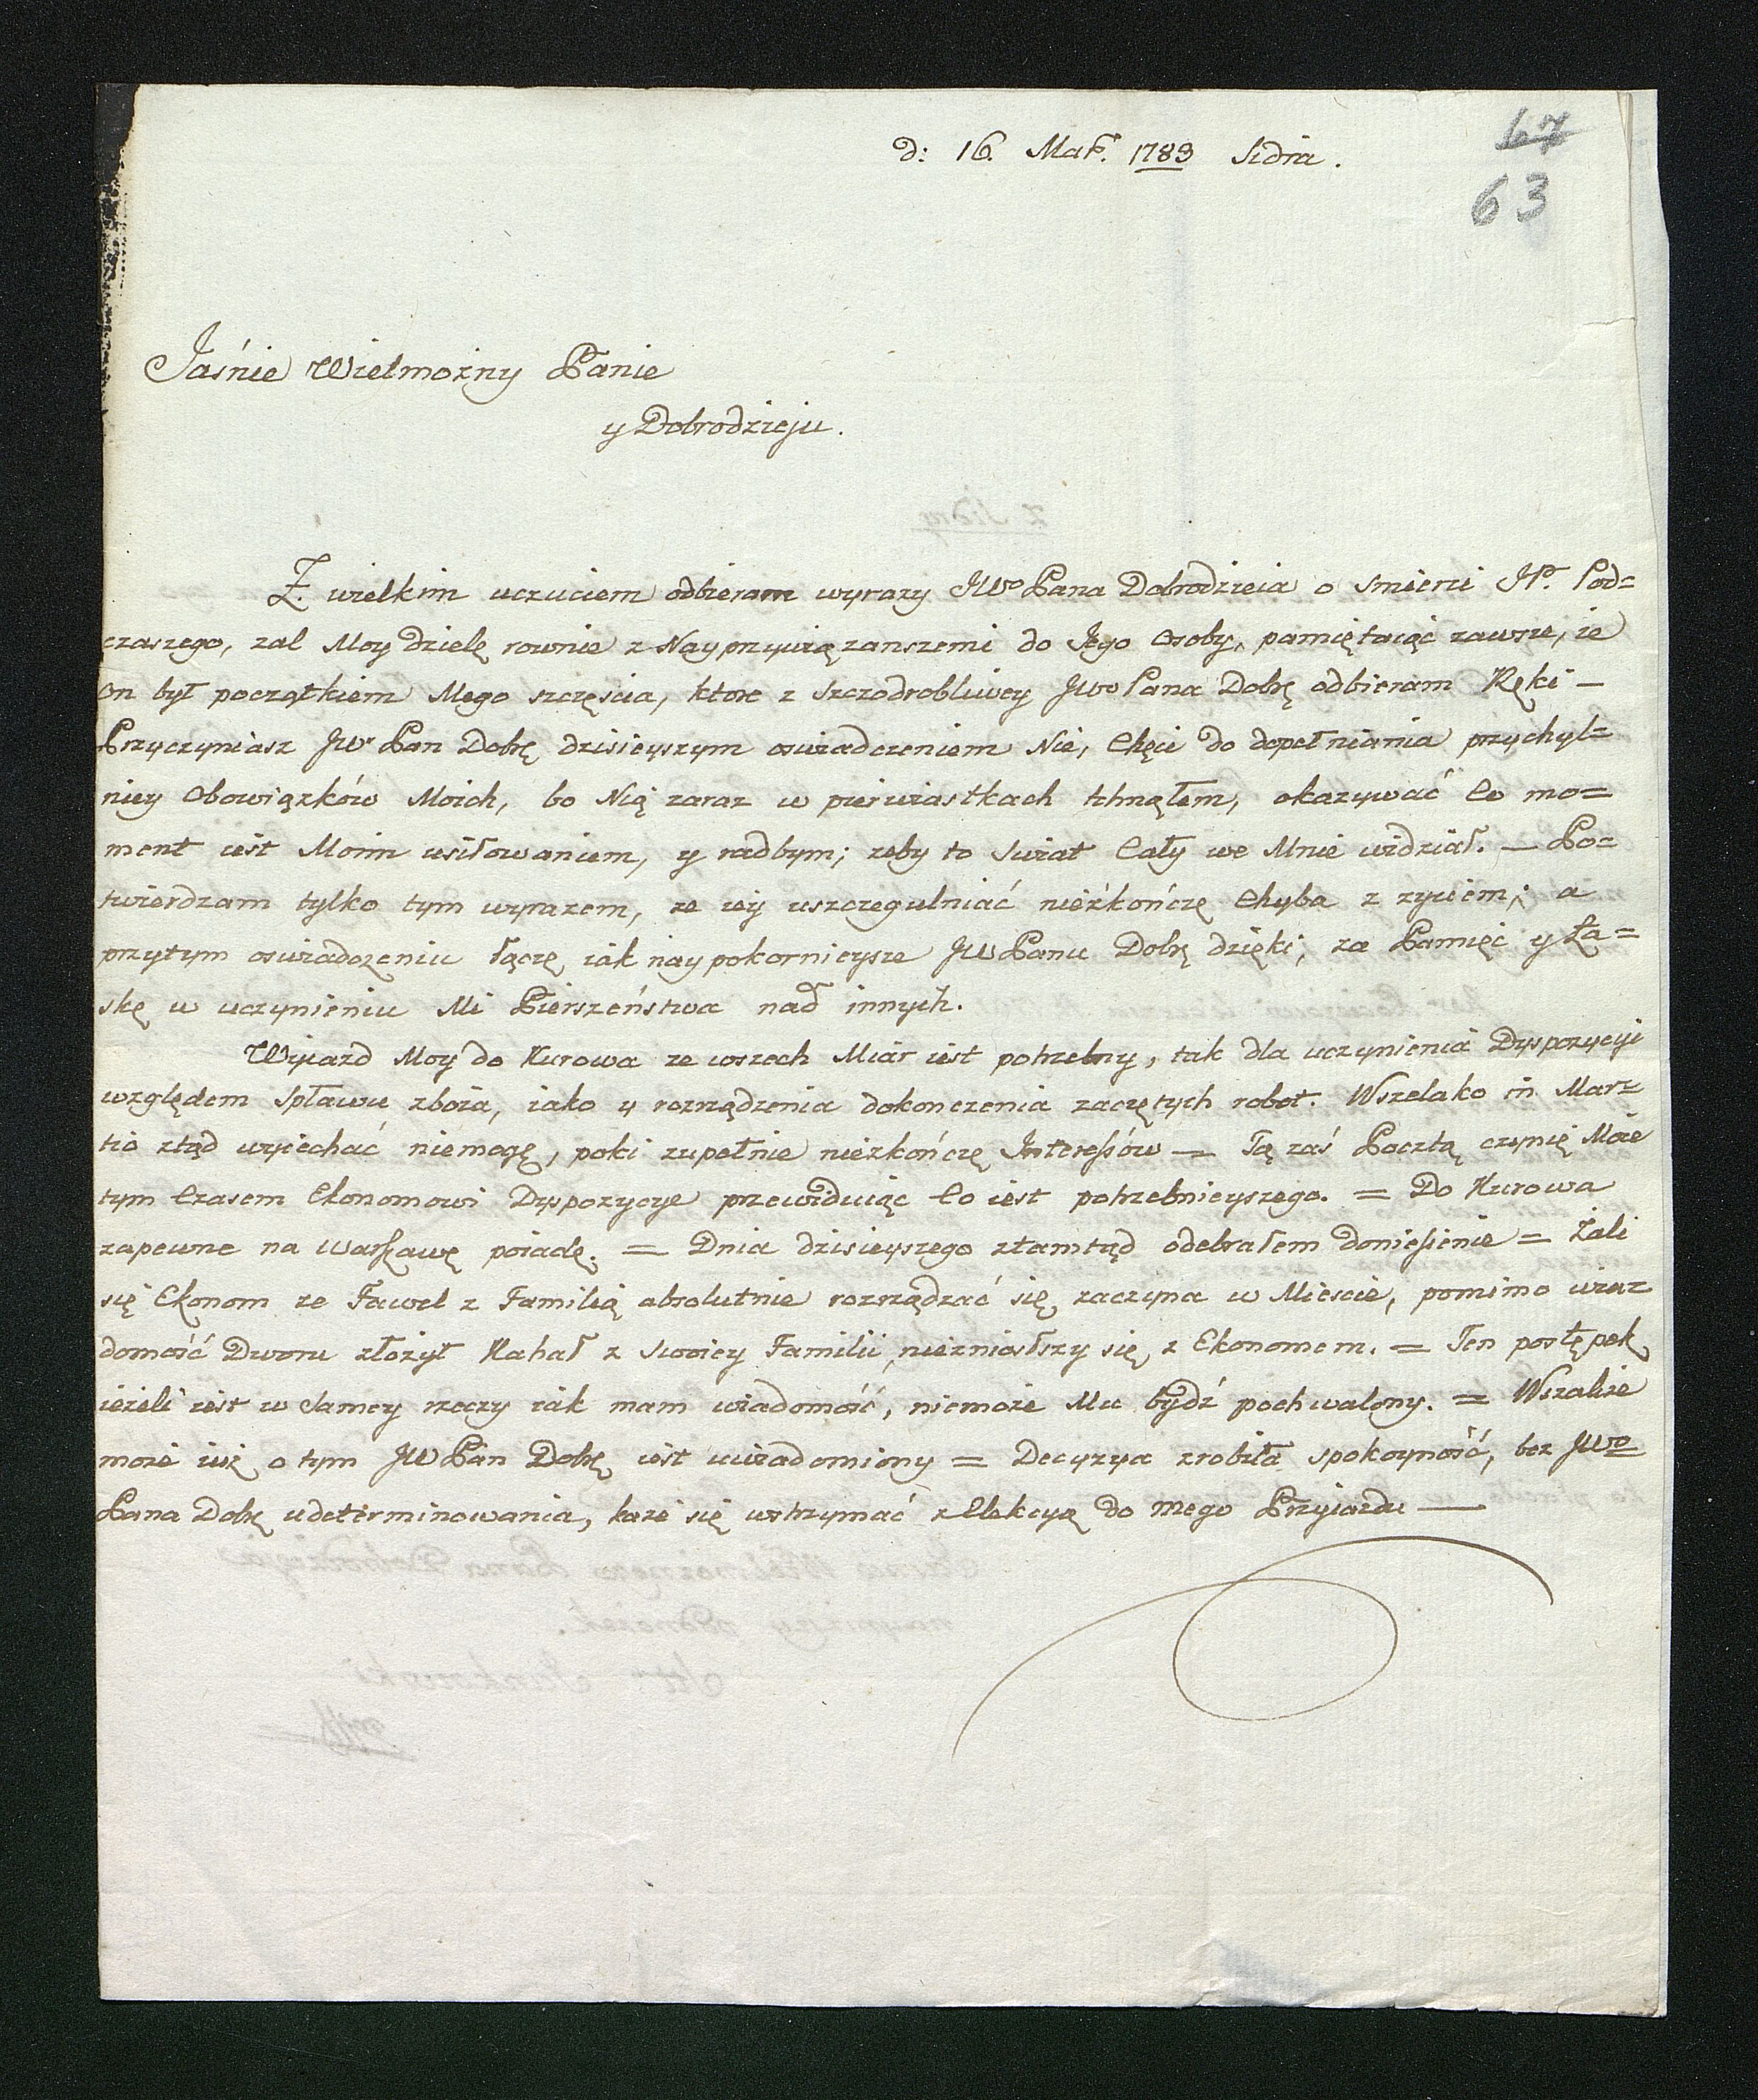 d: 16. Mar. 1783 Sidra.
67
63
Jaśnie Wielmożny Panie
y Dobrodzieju.
Z wielkim uczuciem odbieram wyrazy JWo Pana Dobrodzieia o Smierci JP. Pod=
czaszego, zal Moy dzielę rownie z Nayprzywiązanszemi do Jego Osoby, pamiętaiąc zawsze, że
On był początkiem Mego szczęścia, ktore z Szczodrobliwey JWo Pana Dobr̨ odbieram Ręki —
Przyczyniasz JWr Pan Dobr̨ dzisieyszym oswiadczeniem Nie, Chęci do dopełniania przychyl=
niey Obowiązków Moich, bo Nią zaraz w pierwiastkach tchnąłem, okazywać Co mo=
ment iest Moim usiłowaniem, y radbym; zeby to Swiat Cały we Mnie widział. — Po=
twierdzam tylko tym wyrazem, ze iey uszczegulniać nieżkończę Chyba z zyciem; a
przytym oswiadczeniu łączę iak naypokornieysze JW Panu Dobr̨ dzięki, za Pamięć y Ła=
skę w uczynieniu Mi Pierszeństwa nad innych.
Wyiazd Moy do Kurowa ze wszech Miar iest potrzebny, tak dla uczynienia Dyspozycyi
względem Spławu zboża, iako y rozrządzenia dokonczenia zaczętych robot. Wszelako in Mar=
tio ztąd wyiechać niemogę, poki zupełnie niezkończę Interessów — Tą zaś Pocztą czynię Moie
tym Czasem Ekonomowi Dyspozycye przewiduiąc Co iest potrzebnieyszego. = Do Kurowa
zapewne na Warszawę poiadę. = Dnia dzisieyszego ztamtąd odebrałem doniesienie = Żali
się Ekonom ze Fawel z Familią absolutnie rozrządzać się zaczyna w Mieście, pomimo wia=
domość Dworu złożył Kahał z Swoiey Familii, niezniosłszy się z Ekonomem. = Ten postępek
ieżeli iest w Samey rzeczy iak mam wiadomość, niemoże Mu bydź pochwalony. = Wszakże
może iuż o tym JW Pan Dobr̨ iest uwiadomiony = Decyzya zrobiła spokoyność, bez JWo
Pana Dobr̨ udeterminowania, każe się wstrzymać z Elekcyą do mego Przyiazdu —